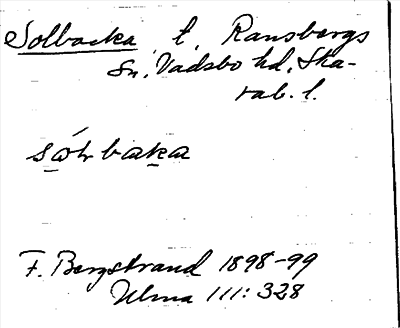 Solbacka t. Ransbergs
Sn. Vadsbo hd. Ska-
rab. l.
sólrbaka
F. Bergstrand 1898-99
Ulma 111:328